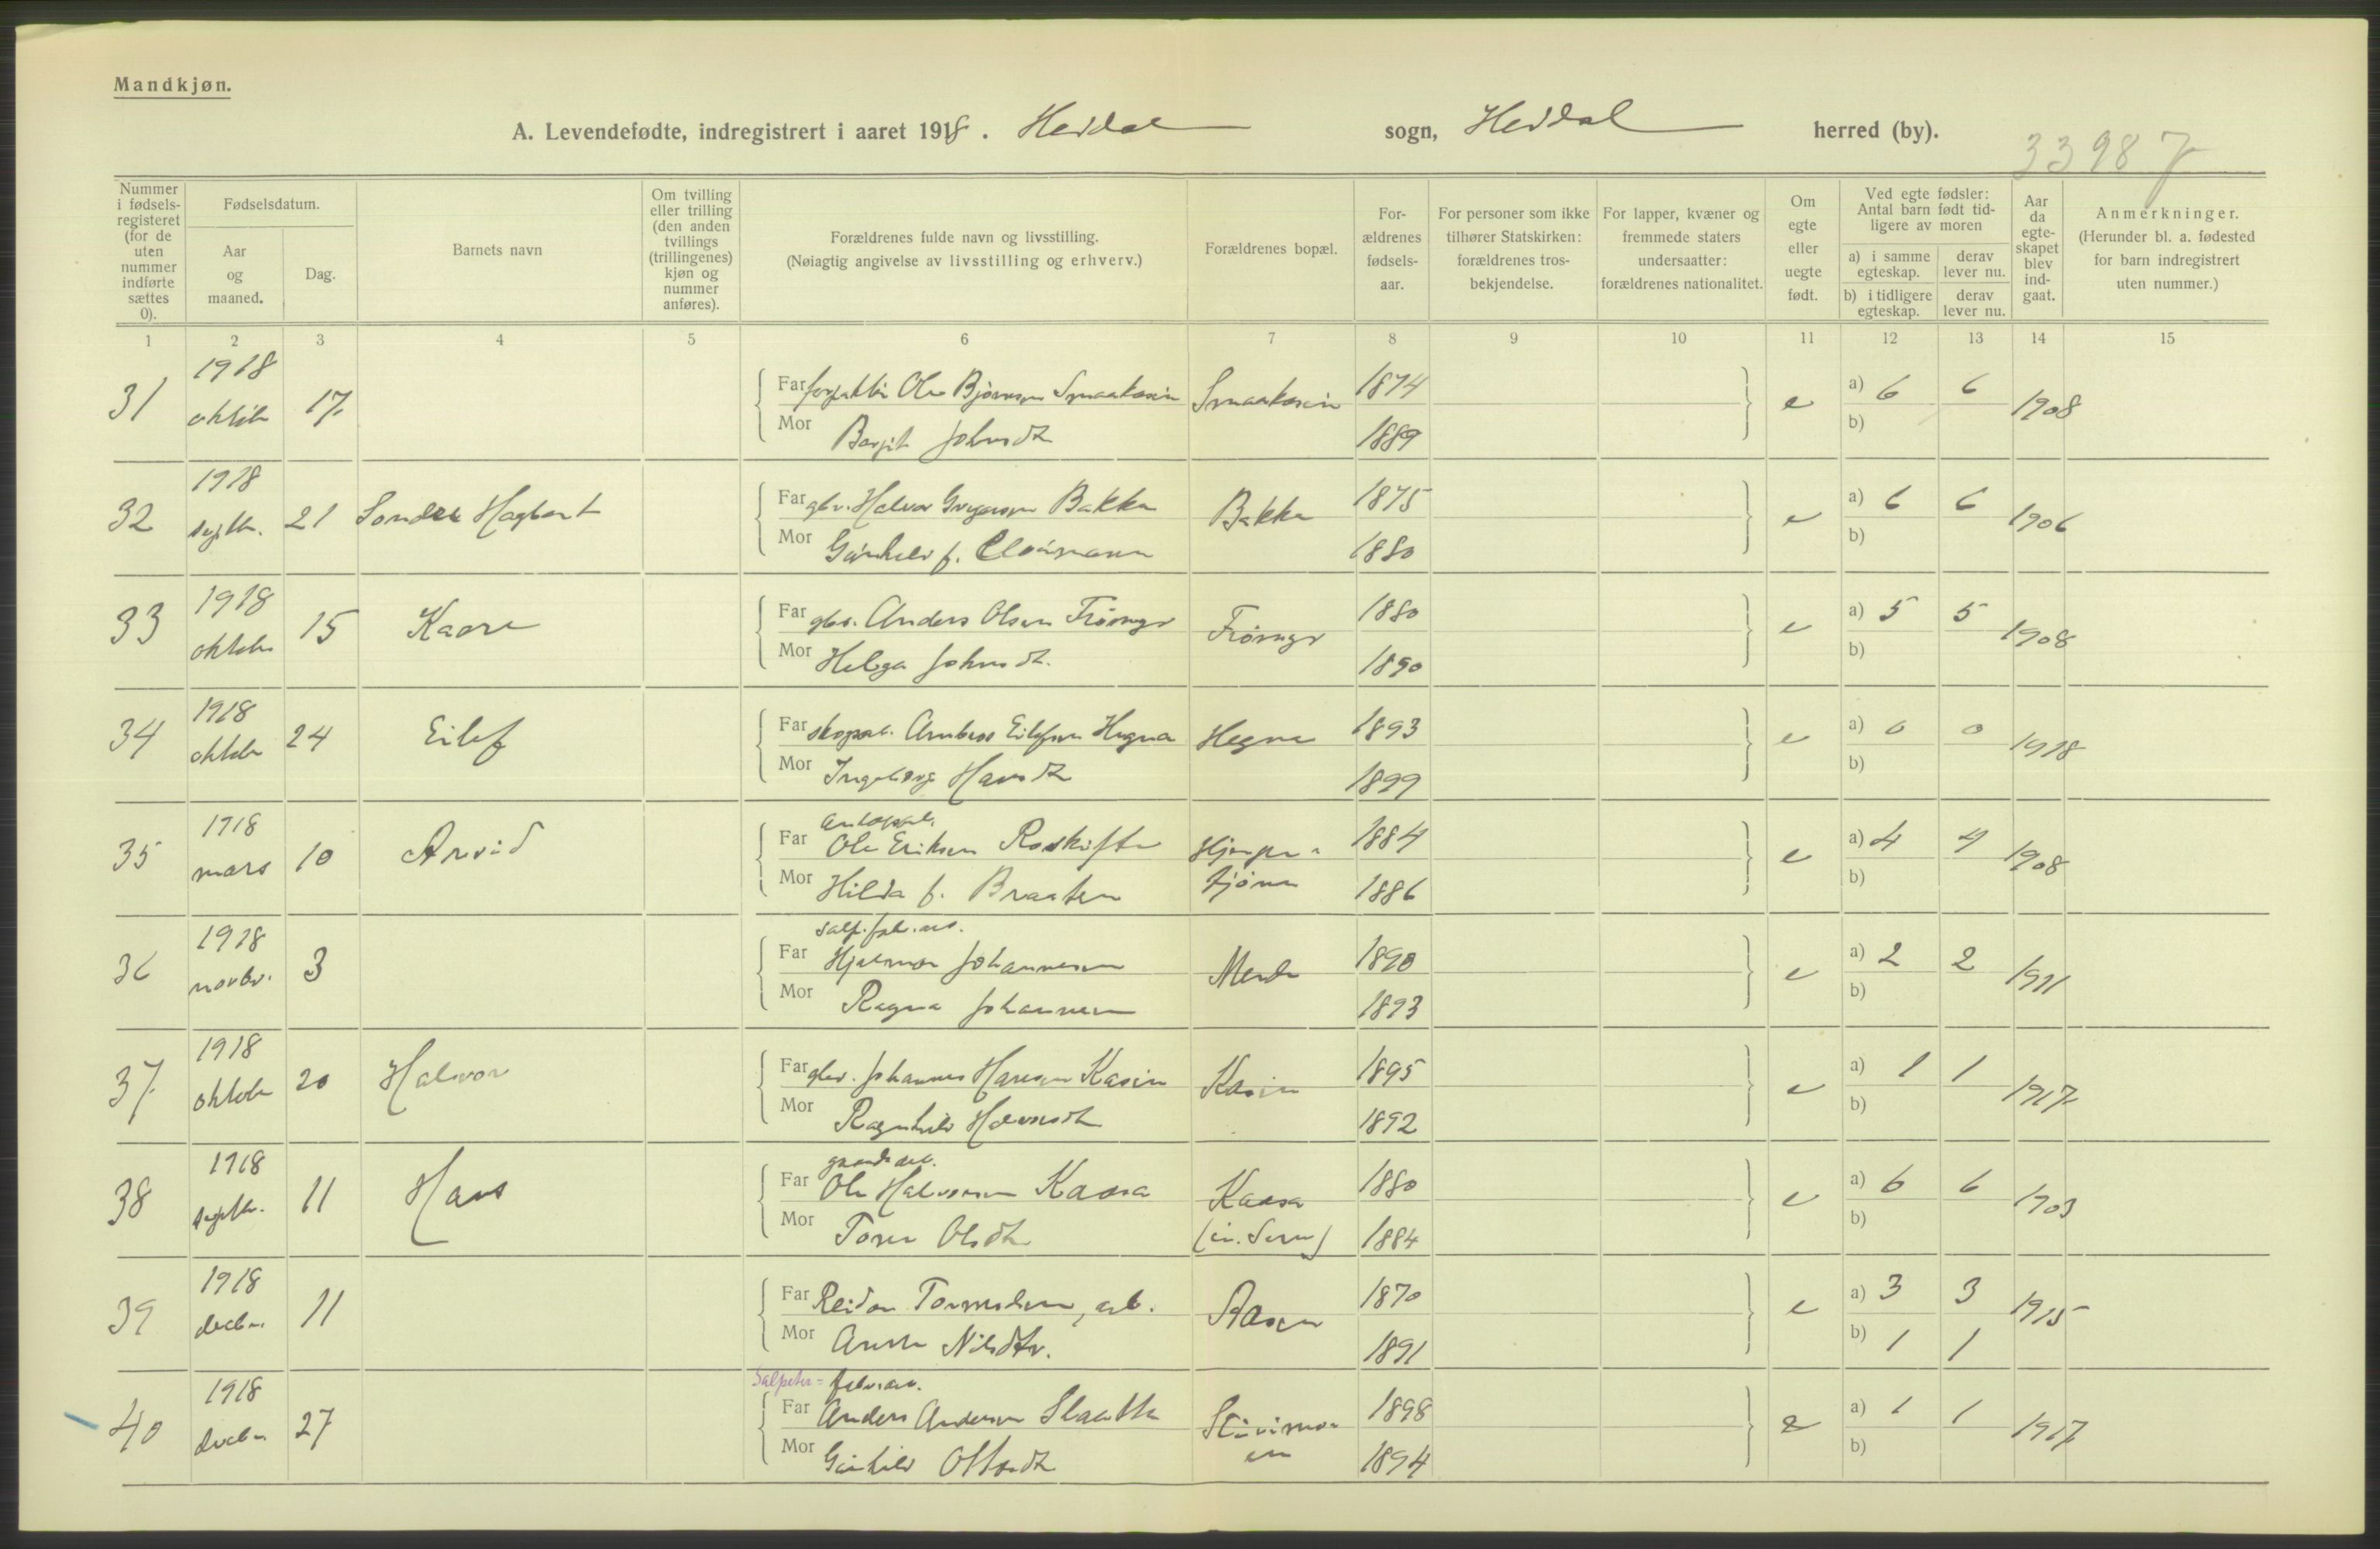 Mandkjøn.
A. Levendefødte, indregistrert i aaret 1918. Heddal sogn, Heddal herred (by).
33987
Nummer i fødsels-registeret (for de uten nummer indførte sættes 0).
Fødselsdatum.
Aar og maaned.
Dag.
Barnets navn
Om tvilling eller trilling (den anden tvillings (trillingenes) kjøn og nummer anføres).
Forældrenes fulde navn og livsstilling.
(Nøiagtig angivelse av livsstilling og erhverv.)
Forældrenes bopæl.
For-ældrenes fødsels-aar.
For personer som ikke tilhører Statskirken: forældrenes tros-bekjendelse.
For lapper, kvæner og fremmede staters undersaatter: forældrenes nationalitet.
Om egte eller uegte født.
Ved egte fødsler: Antal barn født tid-ligere av moren
a) i samme egteskap.
derav lever nu.
b) i tidligere egteskap.
derav lever nu.
Aar da egte-skapet blev ind-gaat.
Anmerkninger.
(Herunder bl. a. fødested for barn indregistrert uten nummer.)
1 2 3 4 5 6 7 8 9 10 11 12 13 14 15
31 1918 17 Far Ole Bjørnsen Smaakasin Smaakasin 1874 e a) 6 6 1908
Mor Bergit Johnsdt 1889 b)
32 1918 septbr. 21 Sondre Hagbart Far gbr. Halvor Gregersen Bakka Bakka 1875 e a) 6 6 1906
Mor Gunhild f. 1880 b)
33 1918 oktobr 15 Kaare Far gbr. Anders Olsen 1880 e a) 5 5 1908
Mor Helga Johnsdt. 1890 b)
34 1918 oktobr 24 Eilef Far Eilefsen Hegna Hegna 1893 e a) 0 0 1918
Mor Ingeborg Hansdt 1899 b)
35 1918 mars 10 Arvid
Far Ole Eriksen Roskifte 1884 e a) 4 4 1908
Mor Hilda f. Braaten 1886 b)
36 1918 novbr. 3 salp.fabr.arb.
Far Hjalmar Johannesen 1890 e a) 2 2 1911
Mor Ragna Johannesen 1893 b)
37 1918 oktobr 20 Halvor Far gbr. Johannes Hansen Kasin Kasin 1895 e a) 1 1 1917
Mor Ragnhild Halvorsdt 1892 b)
38 1918 septbr. 11 Hans gaardsarb.
Far Ole Halvorsen Kaasa Kaasa 1880 e a) 6 6 1903
Mor Olsdt 1884 b)
39 1918 decbr. 11 Far Reidar Tormodsen, arb. Aasen 1870 e a) 3 3 1915
Mor Anne Nilsdtr. 1891 b) 1 1
40 1918 decbr. 27 Salpeter-fabr.arb.
Far Anders Andersen Slaatta 1898 e a) 1 1 1917
Mor Gunhild Ottosdt 1894 b)